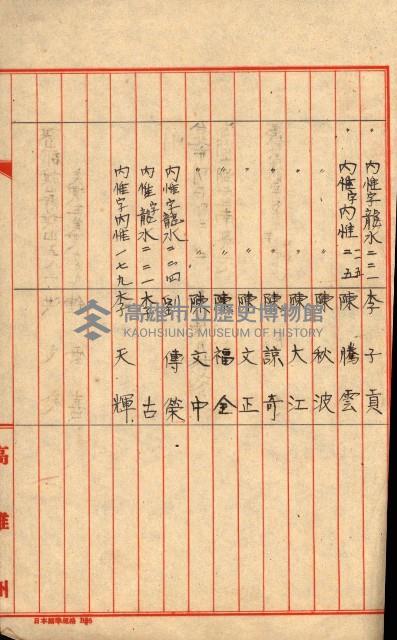 〃 內惟字龍水二二一 李子貢
〃 內惟字內惟二一五 陳騰雲
〃 〃 陳秋波
〃 〃 陳大江
〃 〃 陳諒奇
〃 〃 陳文正
〃 〃 陳福全
〃 〃 陳文中
內惟字龍水二二四 劉傳榮
內惟字龍水二二一 李古
內惟字內惟一七九 李天輝
高雄州
日本標準規格
高雄市立歷史博物館
KAOHSIUNG MUSEUM OF HISTORY